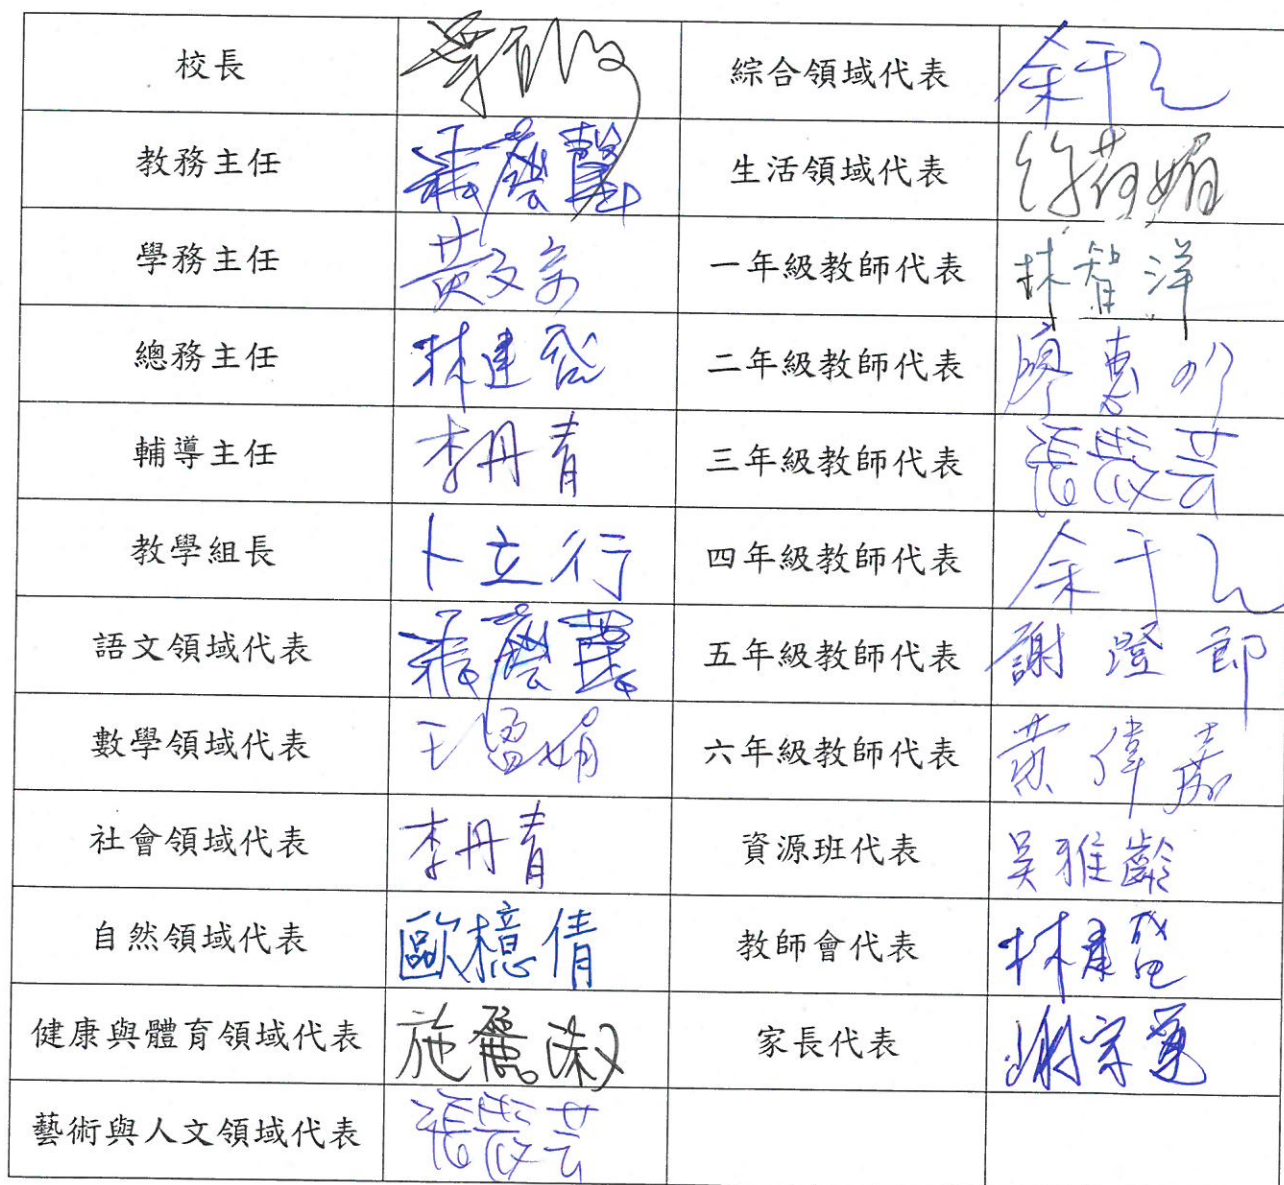 校長 綜合領域代表 余千乙
教務主任 生活領域代表
學務主任 黃文 一年級教師代表 林智洋
總務主任 林建 二年級教師代表 廖惠
輔導主任 李丹青 三年級教師代表 張 芸
教學組長 卜立行 四年級教師代表 余千乙
語文領域代表 五年級教師代表 謝澄郎
數學領域代表 王盈娟 六年級教師代表 黃偉嘉
社會領域代表 李丹青 資源班代表 吳雅齡
自然領域代表 歐檍倩 教師會代表 林
健康與體育領域代表 施麗淑 家長代表 謝宗
藝術與人文領域代表 張 芸